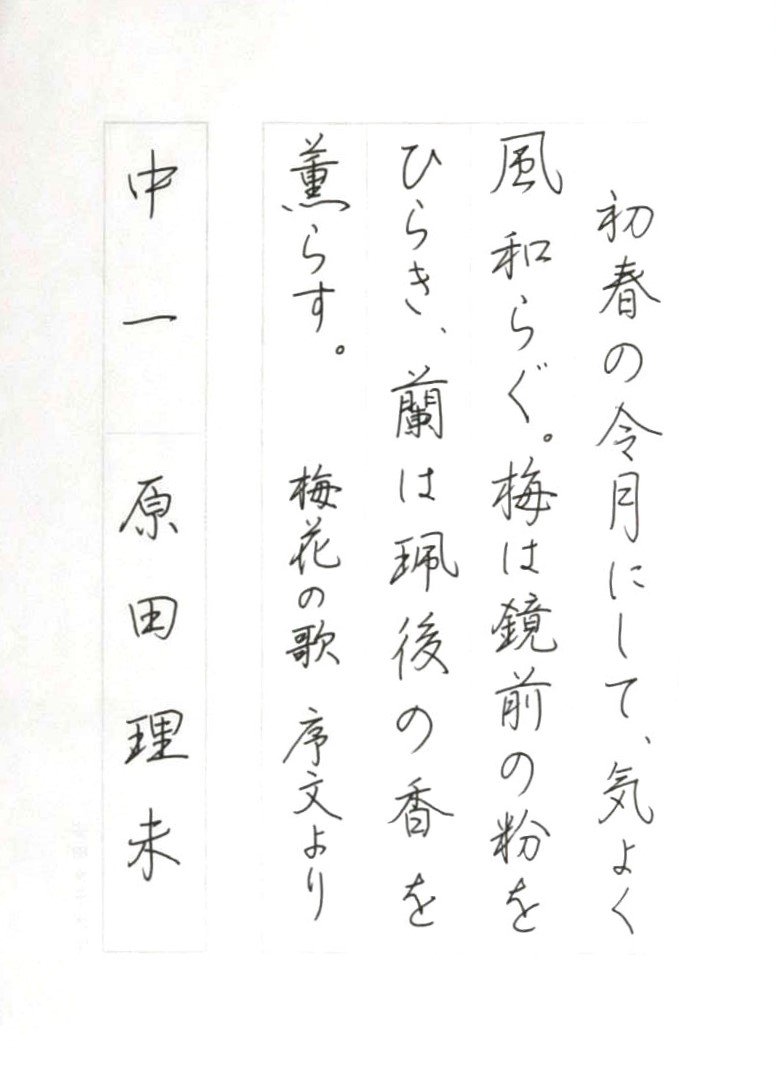 初春の令月にして、気よく
風和らぐ。梅は鏡前の粉を
ひらき、蘭は珮後の香を
薫らす。 梅花の歌 序文より
中一 原田理未